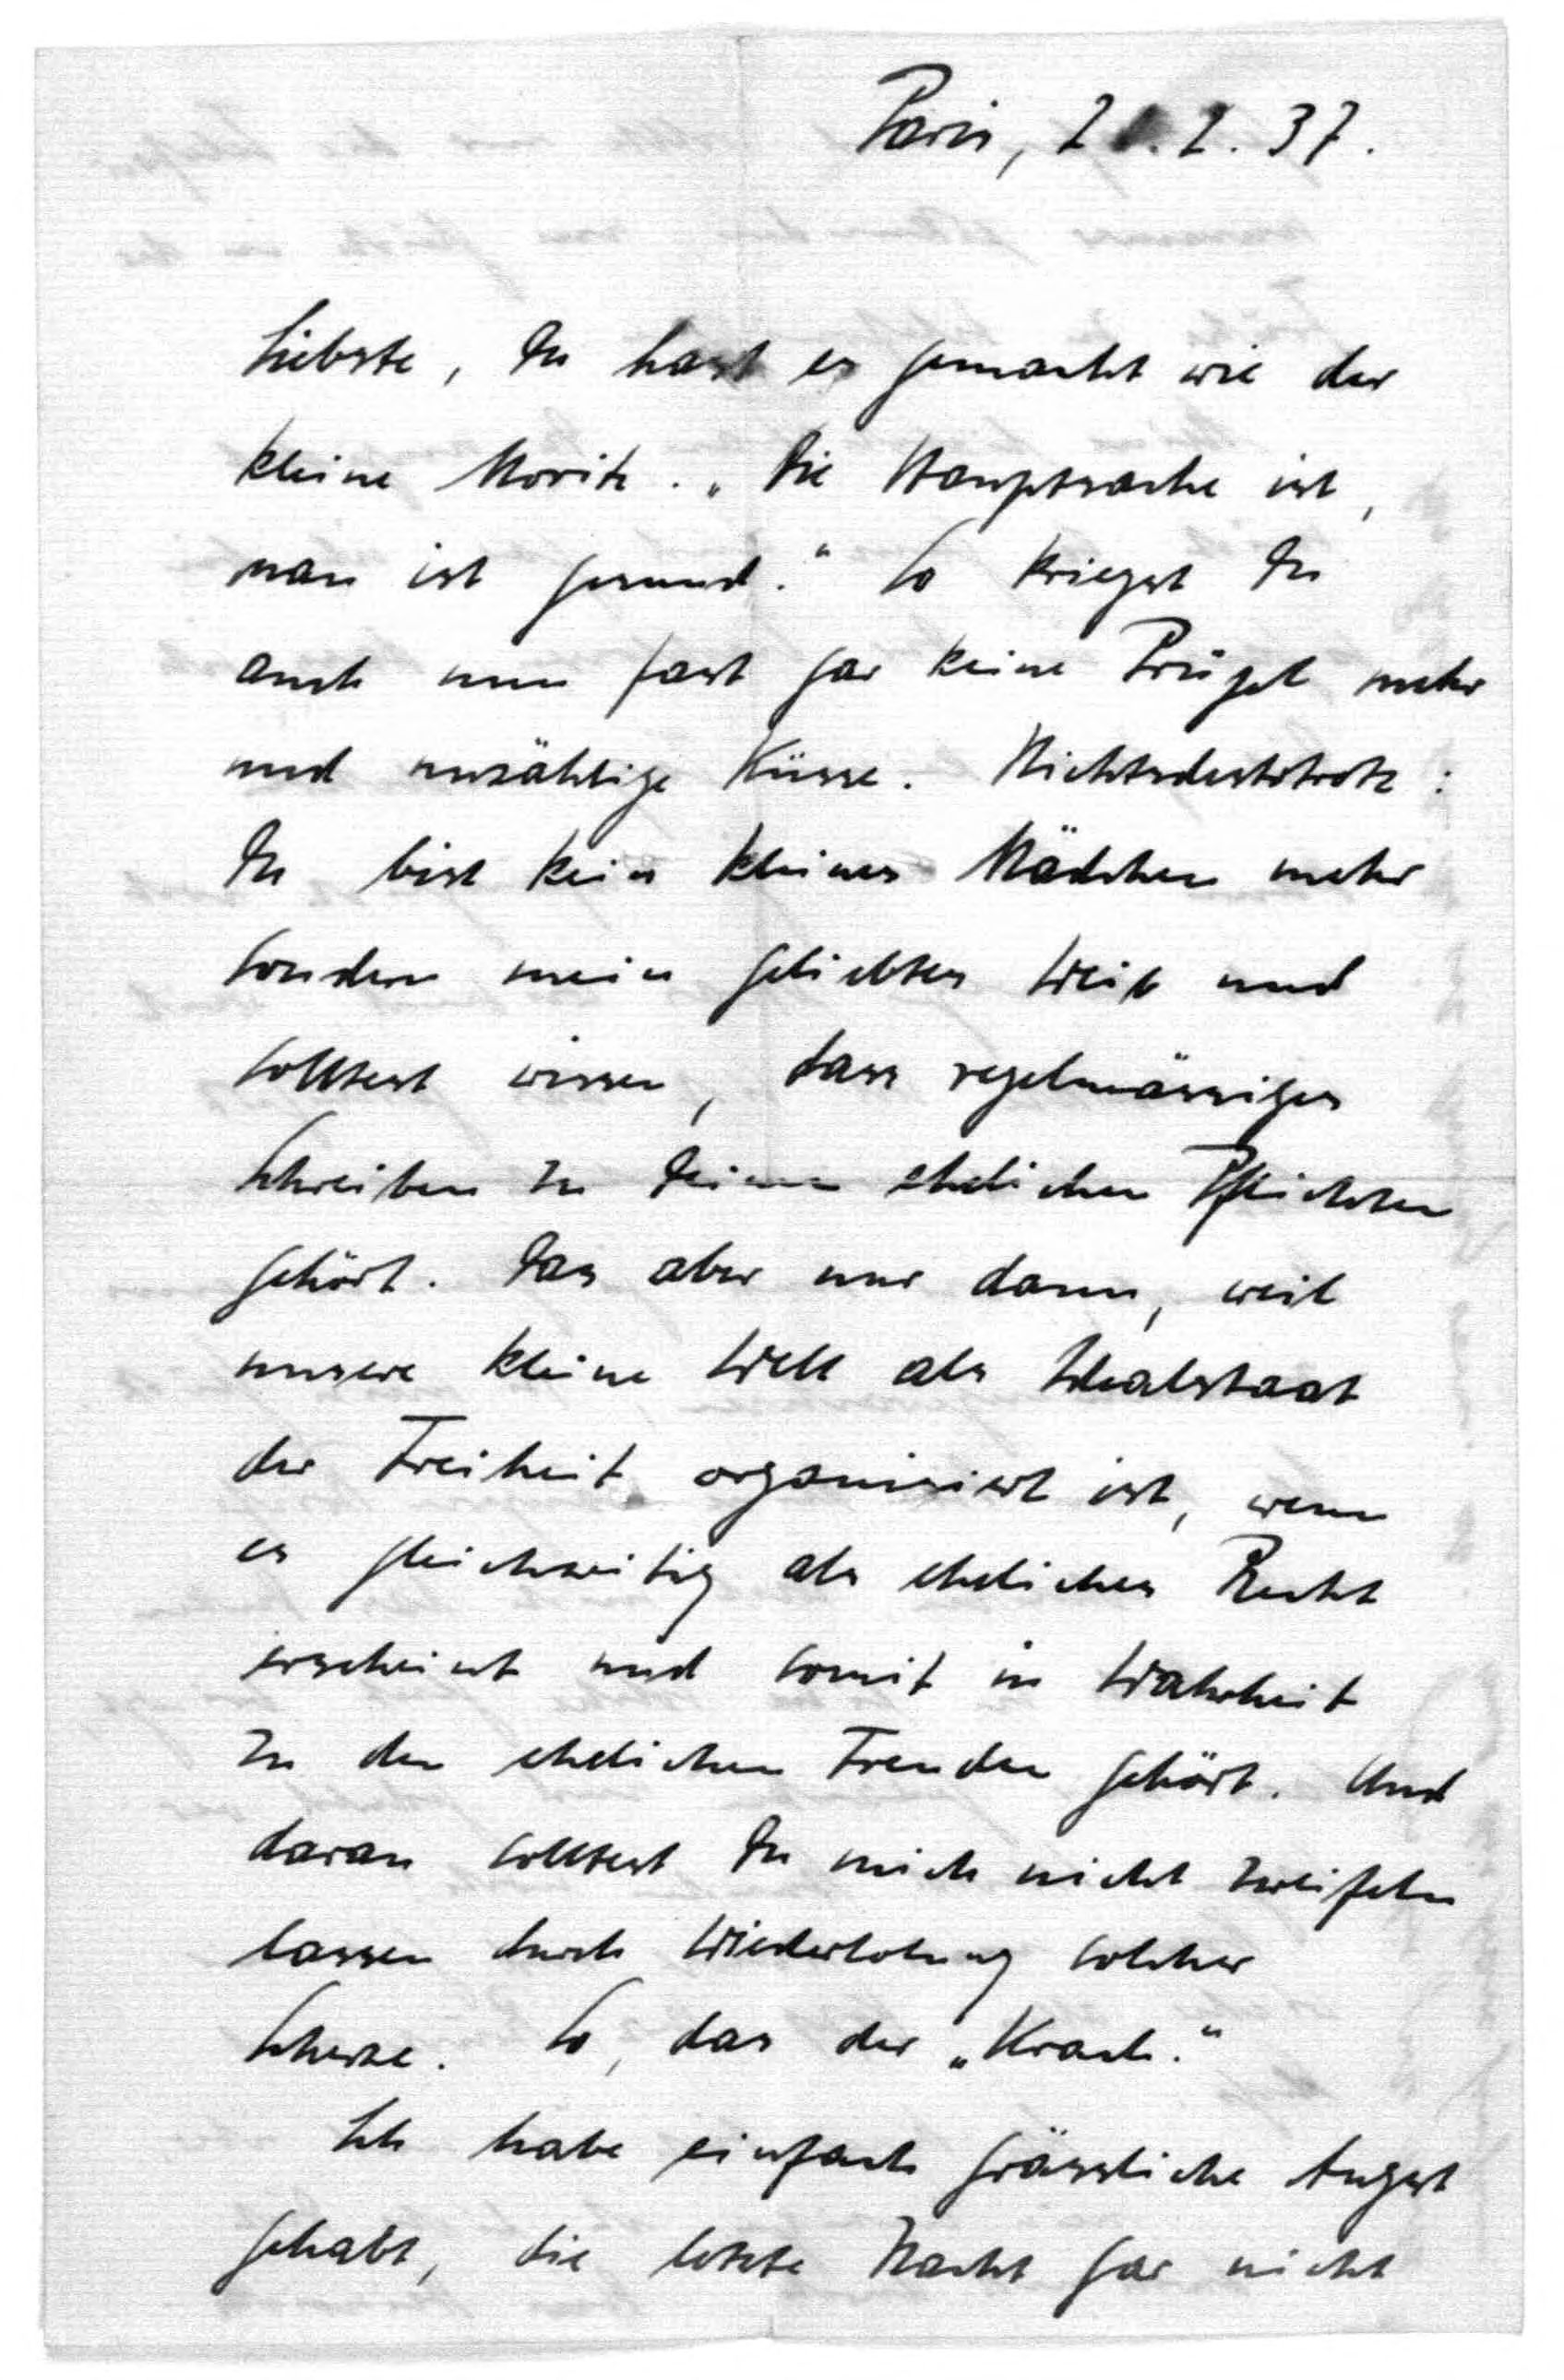 Paris, 2 . 2. 37.
Liebste, Du hast es gemacht wie der
kleine Moritz. „Die Hauptsache ist,
man ist gesund.“ So kriegst Du
auch nun fast gar keine Prügel mehr
und unzählige Küsse. Nichtsdestotrotz:
Du bist kein kleines Mädchen mehr
sondern mein geliebtes Weib und
solltest wissen, dass regelmässiges
Schreiben zu Deinen ehelichen Pflichten
gehört. Das aber nur dann, weil
unsere kleine Welt als Idealstaat
der Freiheit organisiert ist, wenn
es gleichzeitig als eheliches Recht
erscheint und somit in Wahrheit
zu den ehelichen Freuden gehört. Und
daran solltest Du mich nicht zweifeln
lassen durch Wiederholung solcher
Scherze. So, das der „Krach.“
Ich habe einfach grässliche Angst
gehabt, die letzte Nacht gar nicht